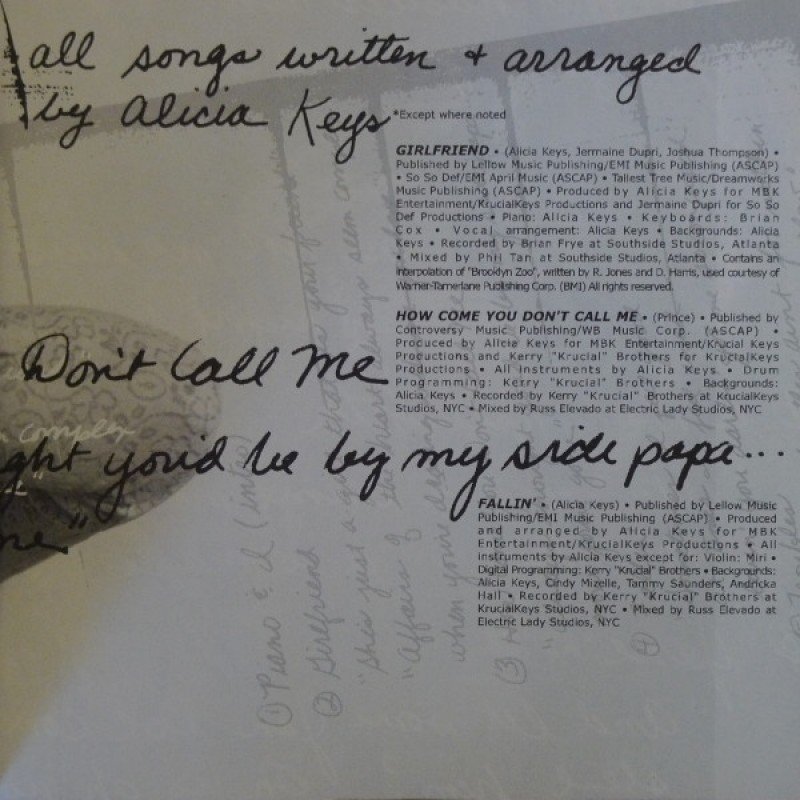 all songs written + arranged
by Alicia Keys
*Except where noted
GIRLFRIEND • (Alicia Keys, Jermaine Dupri, Joshua Thompson) •
Published by Lellow Music Publishing/EMI Music Publishing (ASCAP)
• So So Def/EMI April Music (ASCAP) • Tallest Tree Music/Dreamworks
Music Publishing (ASCAP) • Produced by Alicia Keys for MBK
Entertainment/KrucialKeys Productions and Jermaine Dupri for So So
Def Productions • Piano: Alicia Keys • Keyboards: Brian
Cox • Vocal arrangement: Alicia Keys • Backgrounds: Alicia
Keys • Recorded by Brian Frye at Southside Studios, Atlanta
• Mixed by Phil Tan at Southside Studios, Atlanta • Contains an
interpolation of "Brooklyn Zoo", written by R. Jones and D. Harris, used courtesy of
Warner-Tamerlane Publishing Corp. (BMI) All rights reserved.
HOW COME YOU DON'T CALL ME • (Prince) • Published by
Controversy Music Publishing/WB Music Corp. (ASCAP) •
Produced by Alicia Keys for MBK Entertainment/Krucial Keys
Productions and Kerry "Krucial" Brothers for KrucialKeys
Productions • All Instruments by Alicia Keys • Drum
Programming: Kerry "Krucial" Brothers • Backgrounds:
Alicia Keys • Recorded by Kerry "Krucial" Brothers at KrucialKeys
Studios, NYC • Mixed by Russ Elevado at Electric Lady Studios, NYC
Don't Call Me
complex
ght you'd be by my side papa...
FALLIN' • (Alicia Keys) • Published by Lellow Music
Publishing/EMI Music Publishing (ASCAP) • Produced
and arranged by Alicia Keys for MBK
Entertainment/KrucialKeys Productions • All
instruments by Alicia Keys except for: Violin: Miri •
Digital Programming: Kerry "Krucial" Brothers • Backgrounds:
Alicia Keys, Cindy Mizelle, Tammy Saunders, Andricka
Hall • Recorded by Kerry "Krucial" Brothers at
KrucialKeys Studios, NYC • Mixed by Russ Elevado at
Electric Lady Studios, NYC
① Piano & I (intro)
② Girlfriend
"She's just a
"affairs of the heart always seem
when you're
③
④